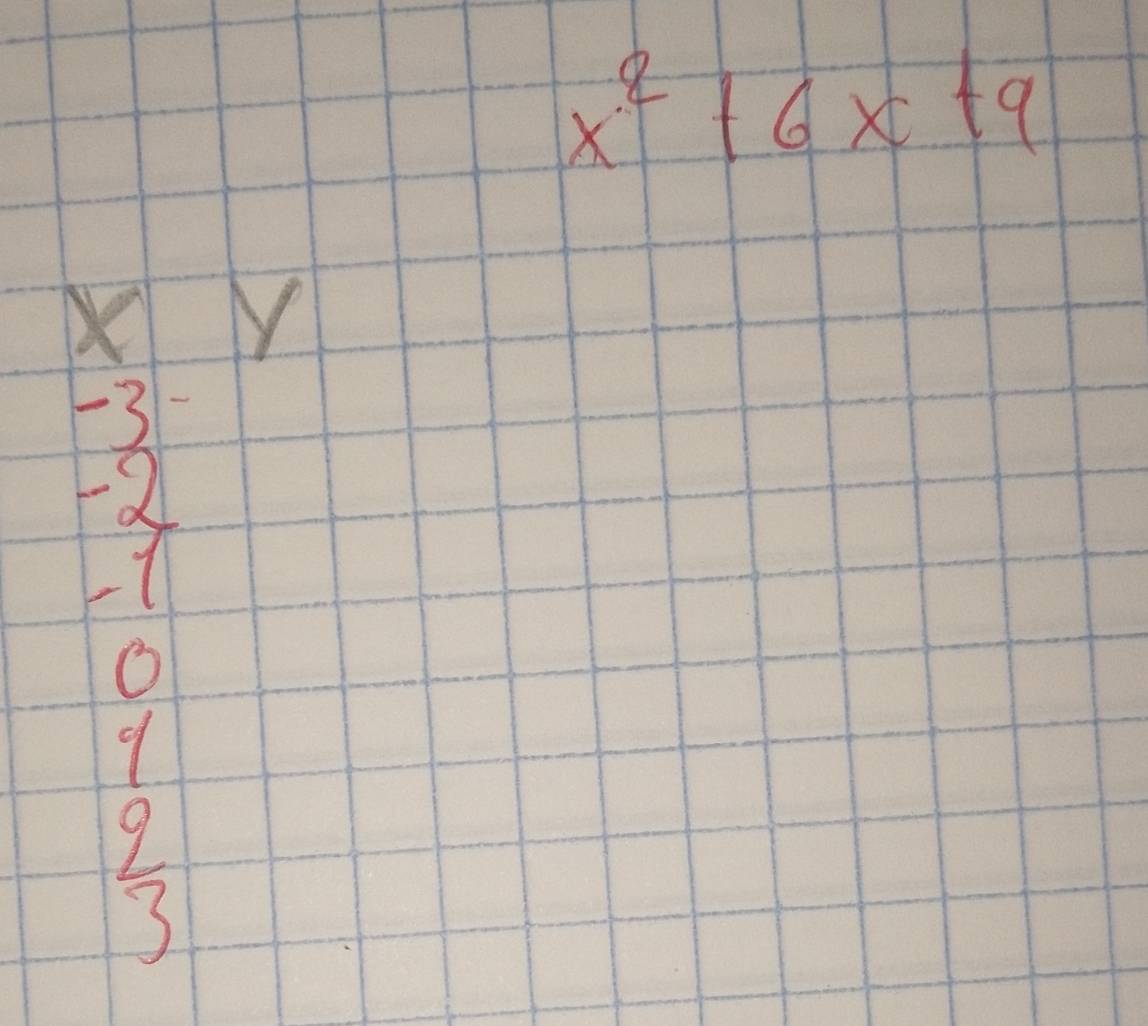 x² + 6x + 9
X Y
-3 -
-2
-1
0
1
2
3